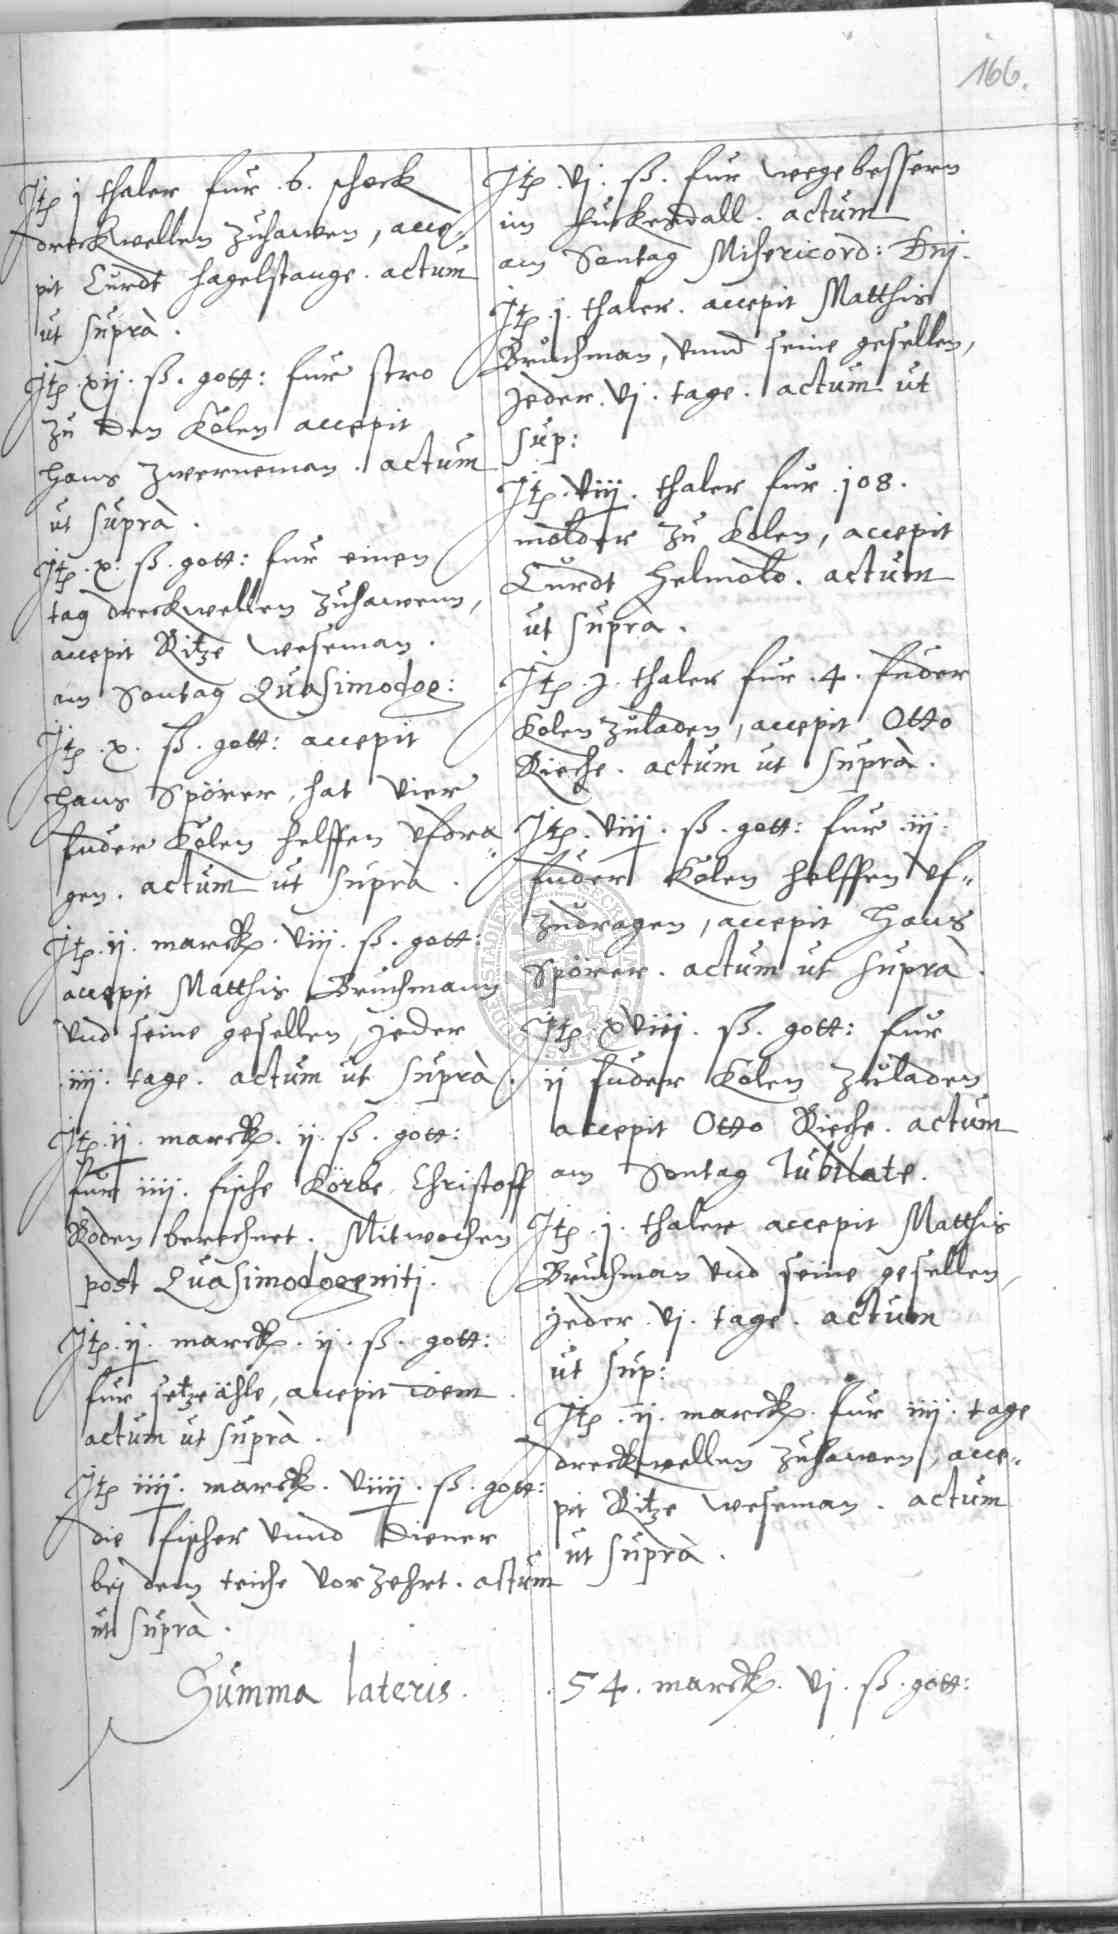 166.
Itp j thaler fur .6. schock
dreckwellen zuhawen, acce„
pit Curdt Hagelstange. actum
ut suprà.
Itp. xij. ß. gott: fur stro
zu den Kolen accepit
Hans Zwerneman. actum
ut suprà.
Itp. x. ß. gott: fur einen
tag dreckwellen zuhawenn,
accepit Ritze Weseman.
am Sontag Quasimodog:
Itp. x. ß. gott: accepit
Hans Spörer, hat vier
fuder Kolen helffen vfdra„
gen. actum ut suprà.
Itp. ij. marck. viij. ß. gott:
accepit Matthis Bruchmann
vnd seine gesellen, jeder
iiij. tage. actum ut suprà.
Itp. ij. marck. ij. ß. gott:
fur iiij. fische Körbe Christoff
Roden berechnet. Mitwochen
post Quasimodogeniti.
Itp. ij. marck. ij. ß. gott:
fur setze ähle, accepit idem.
actum ut suprà.
Itp iiij. marck. viiij. ß. gott:
die fischer vnnd Diener
bej dem teiche vorzehrt. actum
ut suprà.
Itp. vj. ß. fur wege bessern
im actum
am Sontag Misericord: Dnj.
Itp. j. thaler. accepit Matthis
Bruchman, vnnd seine gesellen,
jeder. vj. tage. actum ut
sup:
Itp. viij. thaler fur j08.
molder zu Kolen, accepit
Curdt Helmold. actum
ut supra.
Itp. j. thaler fur .4. fuder
Kolen zuladen, accepit Otto
Rieche. actum ut suprà.
Itp. viij. ß. gott: fur iij:
fuder Kolen helffen vf„
zudragen, accepit Hans
Spörer. actum ut suprà.
Itp. xviij. ß. gott: fur
ij fuder Kolen zuladen
accepit Otto Rieche. actum
am Sontag Iubilate.
Itp. j. thaler accepit Matthis
Bruchman vnd seine gesellen,
jeder. vj. tage. actum
ut sup:
Itp. ij. marck. fur iiij. tage
dreckwellen zuhawen, acce„
pit Ritze Weseman. actum
ut suprà.
Summa lateris. 54. marck. vj. ß. gott: